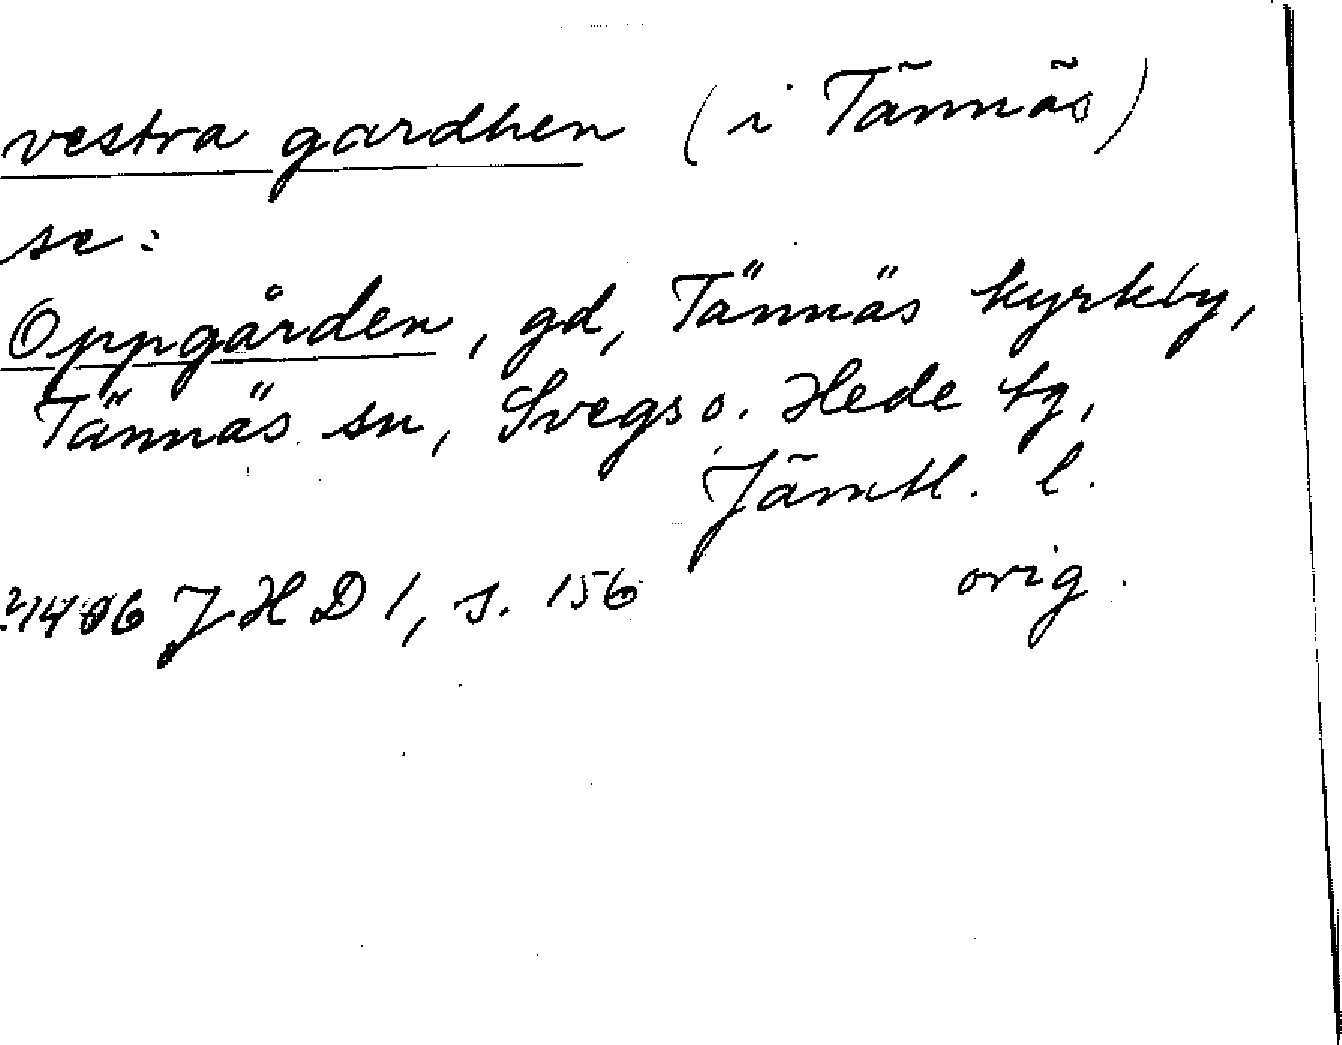 vestra gardhen (i Tännäs)
se:
Oppgården, gd, Tännäs kyrkby,
Tännäs sn, Svegs o. Hede tg,
Jämtl. l.
1406 JHD 1, s. 156 orig.